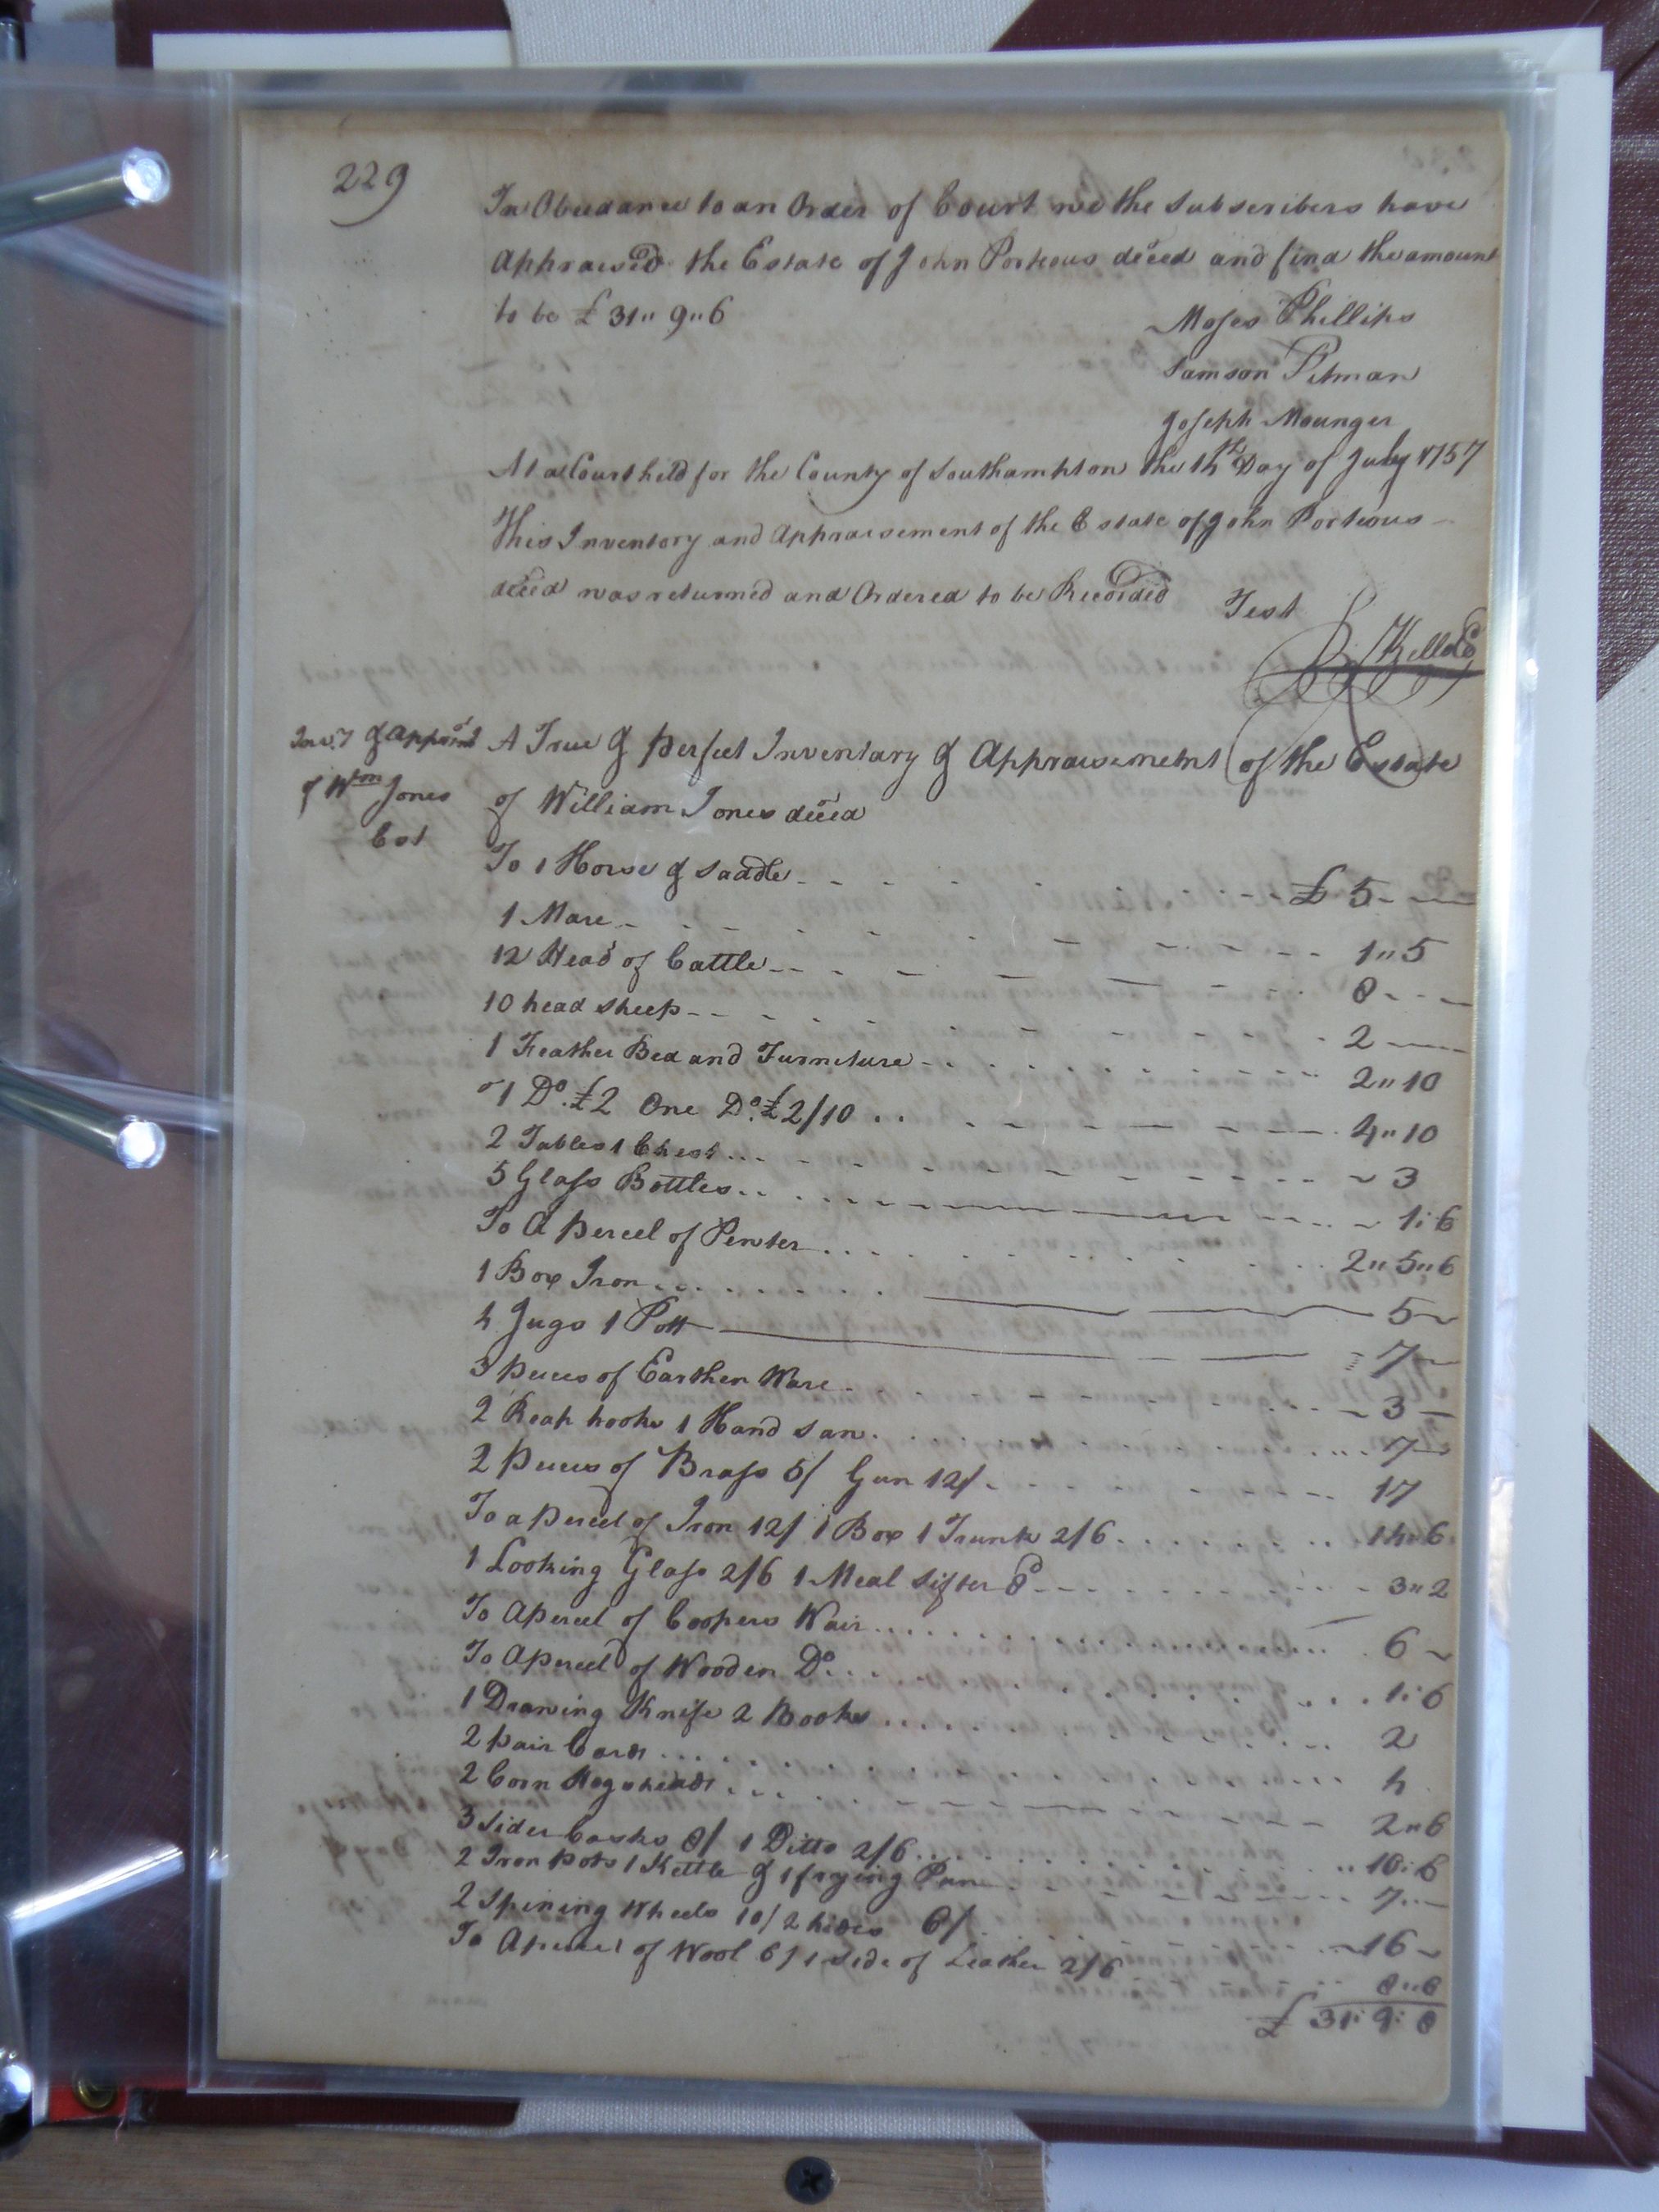 229
In Obeedance to an Order of Court we the Subscribers have
Appraised the Estate of John Porteous deced and find the amount
to be £ 31" 9" 6
Moses Phillips
Samson Pitman
Joseph Mounger
At a Court held for the County of Southampton the 14th Day of July 1757
This Inventory and Appraisement of the Estate of John Porteous
deced was returned and Ordered to be Recorded Test
R Kello C
Inv.y & Appraist A True & perfect Inventary & Appraisement of the Estate
of Wm Jones of William Jones deced
Est
To 1 Horse & Saddle £ 5
1 Mare 1" 5
12 Head of Cattle 8
10 head sheep 2
1 Feather Bed and Furniture 2" 10
1 Do. £2 One Do. £2/10 4" 10
2 Tables 1 Chest 3
5 Glass Bottles 1: 6
To A percel of Pewter 2" 5" 6
1 Box Iron 5
4 Jugs 1 Pott 7
3 peices of Earthen Ware 3
2 Reap hooks 1 Hand saw 7
2 peices of Brass 5/ Gun 12/ 17
To a percel of Iron 12/ 1 Box 1 Trunk 2/6 14" 6
1 Looking Glass 2/6 1 Meal Sifter 8d 3" 2
To A percel of Coopers Wair 6
To A percel of Wooden Do 1: 6
1 Drawing Knife 2 Books 2
2 pair Cards 4
2 Corn Hogsheads 2" 6
3 Sider Casks 8/ 1 Ditto 2/6 10: 6
2 Iron pots 1 Kettle & 1 frying Pan 7
2 Spining Wheels 10/ 2 hides 6/ 16
To A percel of Wool 6/ 1 Side of Leather 2/6 8" 6
£ 31: 9: 8